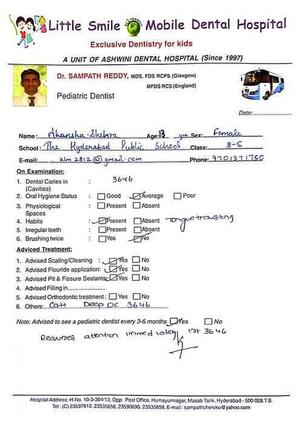 Little Smile Mobile Dental Hospital
Exclusive Dentistry for kids
A UNIT OF ASHWINI DENTAL HOSPITAL (Since 1997)
Dr. SAMPATH REDDY, MDS, FDS RCPS (Glasgow)
MFDS RCS (England)
Pediatric Dentist
Date:
Name: Ahansha Age 13 yrs Sex: Female
School: The Hyderabad Public School Class: 8-G
E-mail: @gmail.com Phone: 9701371760
On Examination:
1. Dental Caries in (Cavities) : 3646
2. Oral Hygiene Status : Good Average Poor
3. Physiological Spaces : Present Absent
4. Habits : Present Absent Tongue thrusting
5. Irregular teeth : Present Absent
6. Brushing twice : Yes No
Adviced Treatment:
1. Advised Scaling/Cleaning : Yes No
2. Advised Flouride application: Yes No
3. Advised Pit & Fissure Sealants: Yes No
4. Advised Filling in
5. Advised Orthodontic treatment : Yes No
6. Others: Deep DC 3646
Note: Advised to see a pediatric dentist every 3-6 months Yes No
Requires attention immediately irt 3646
Hospital Address: H.No. 10-3-304/13, Opp. Post Office, Humayunnagar, Masab Tank, Hyderabad - 500 028.T.S.
Tel: (C) 23537612, 23535656, 23590690, 23535858, E-mail : sampathcheruku@yahoo.com